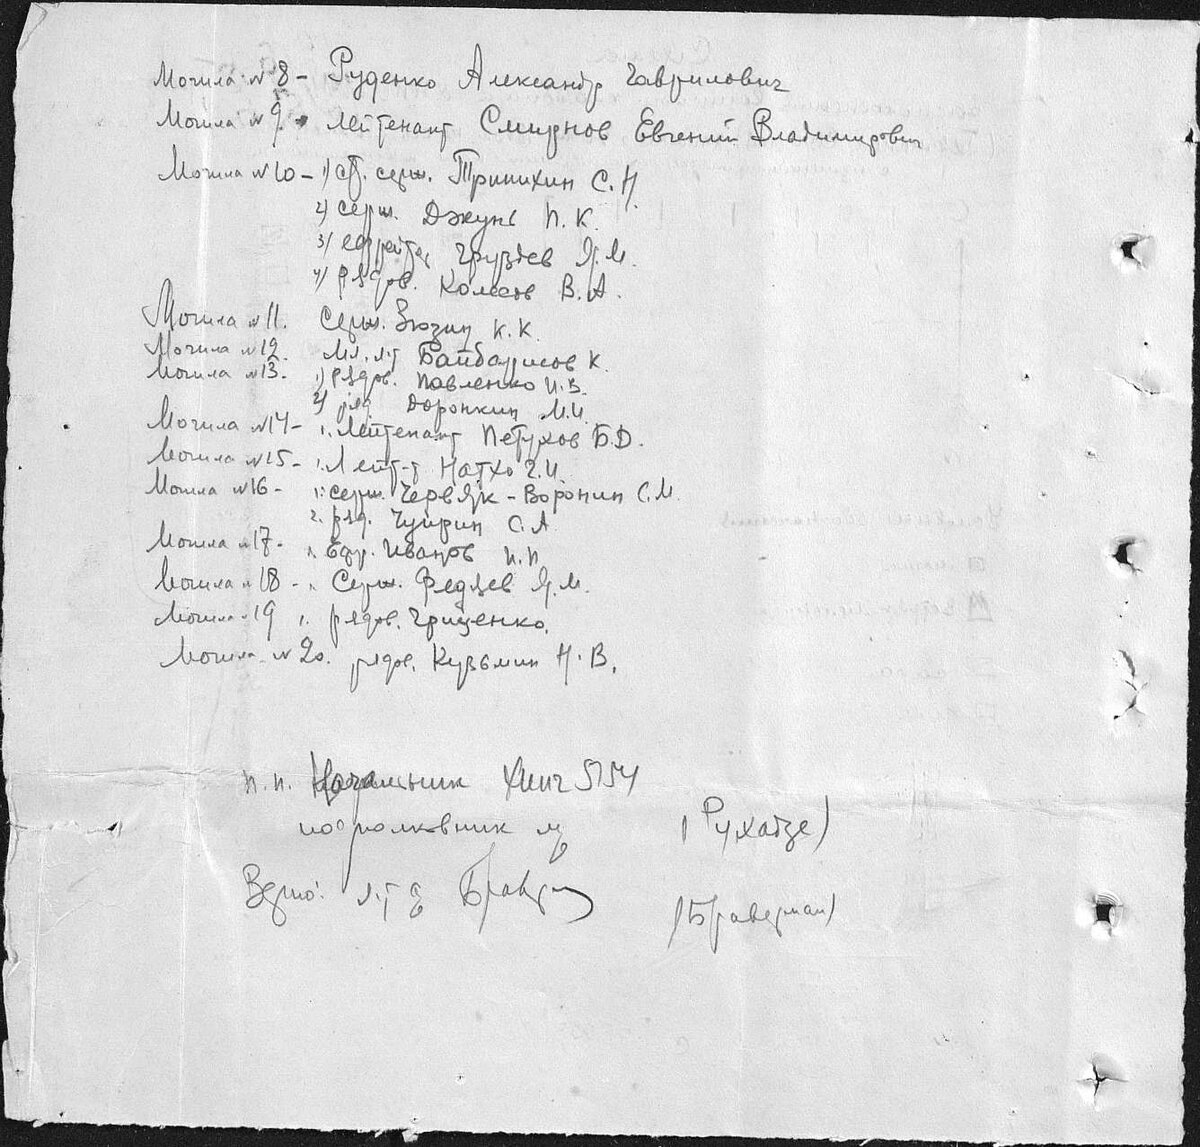 Могила № 8 - Руденко Александр Гаврилович
Могила № 9 - лейтенант Смирнов Евгений Владимирович
Могила № 10 - 1) ст. серж. Тринихин С. Н.
2) серж. Джунь П. К.
3) ефрейтор Груздев Я. М.
4) рядов. Колесов В. А.
Могила № 11. серж. Зюзин К. К.
Могила № 12. мл. л-т Байбарисов К.
Могила № 13. 1) рядов. Павленко И. В.
2) ряд. Доронкин М. И.
Могила № 14 - 1. Лейтенант Петухов Б. Д.
Могила № 15 - 1. Лейт-т Натхо Г. И.
Могила № 16 - 1. серж. Червяк-Воронин С. М.
2. ряд. Чуприн С. А
Могила № 17 - 1. Ефр. Иванов П. П.
Могила № 18 - 1. Серж. Федяев Я. М.
Могила 19 1. рядов. Гриценко.
Могила № 20. рядов. Кузьмин Н. В.
п. п. Начальник 5154
подполковник м/с (Рухадзе)
Верно: л-т а/с (Браверман)